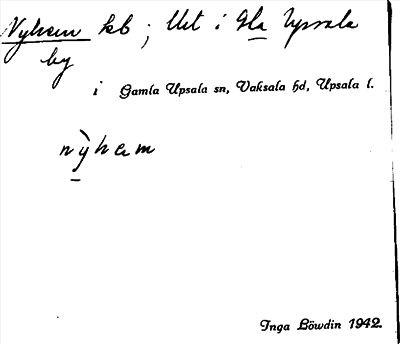 Nyhem kb ; Utt i Gla Upsala
by
i Gamla Upsala sn, Vaksala hd, Upsala l.
nỳhem
Inga Löwdin 1942.